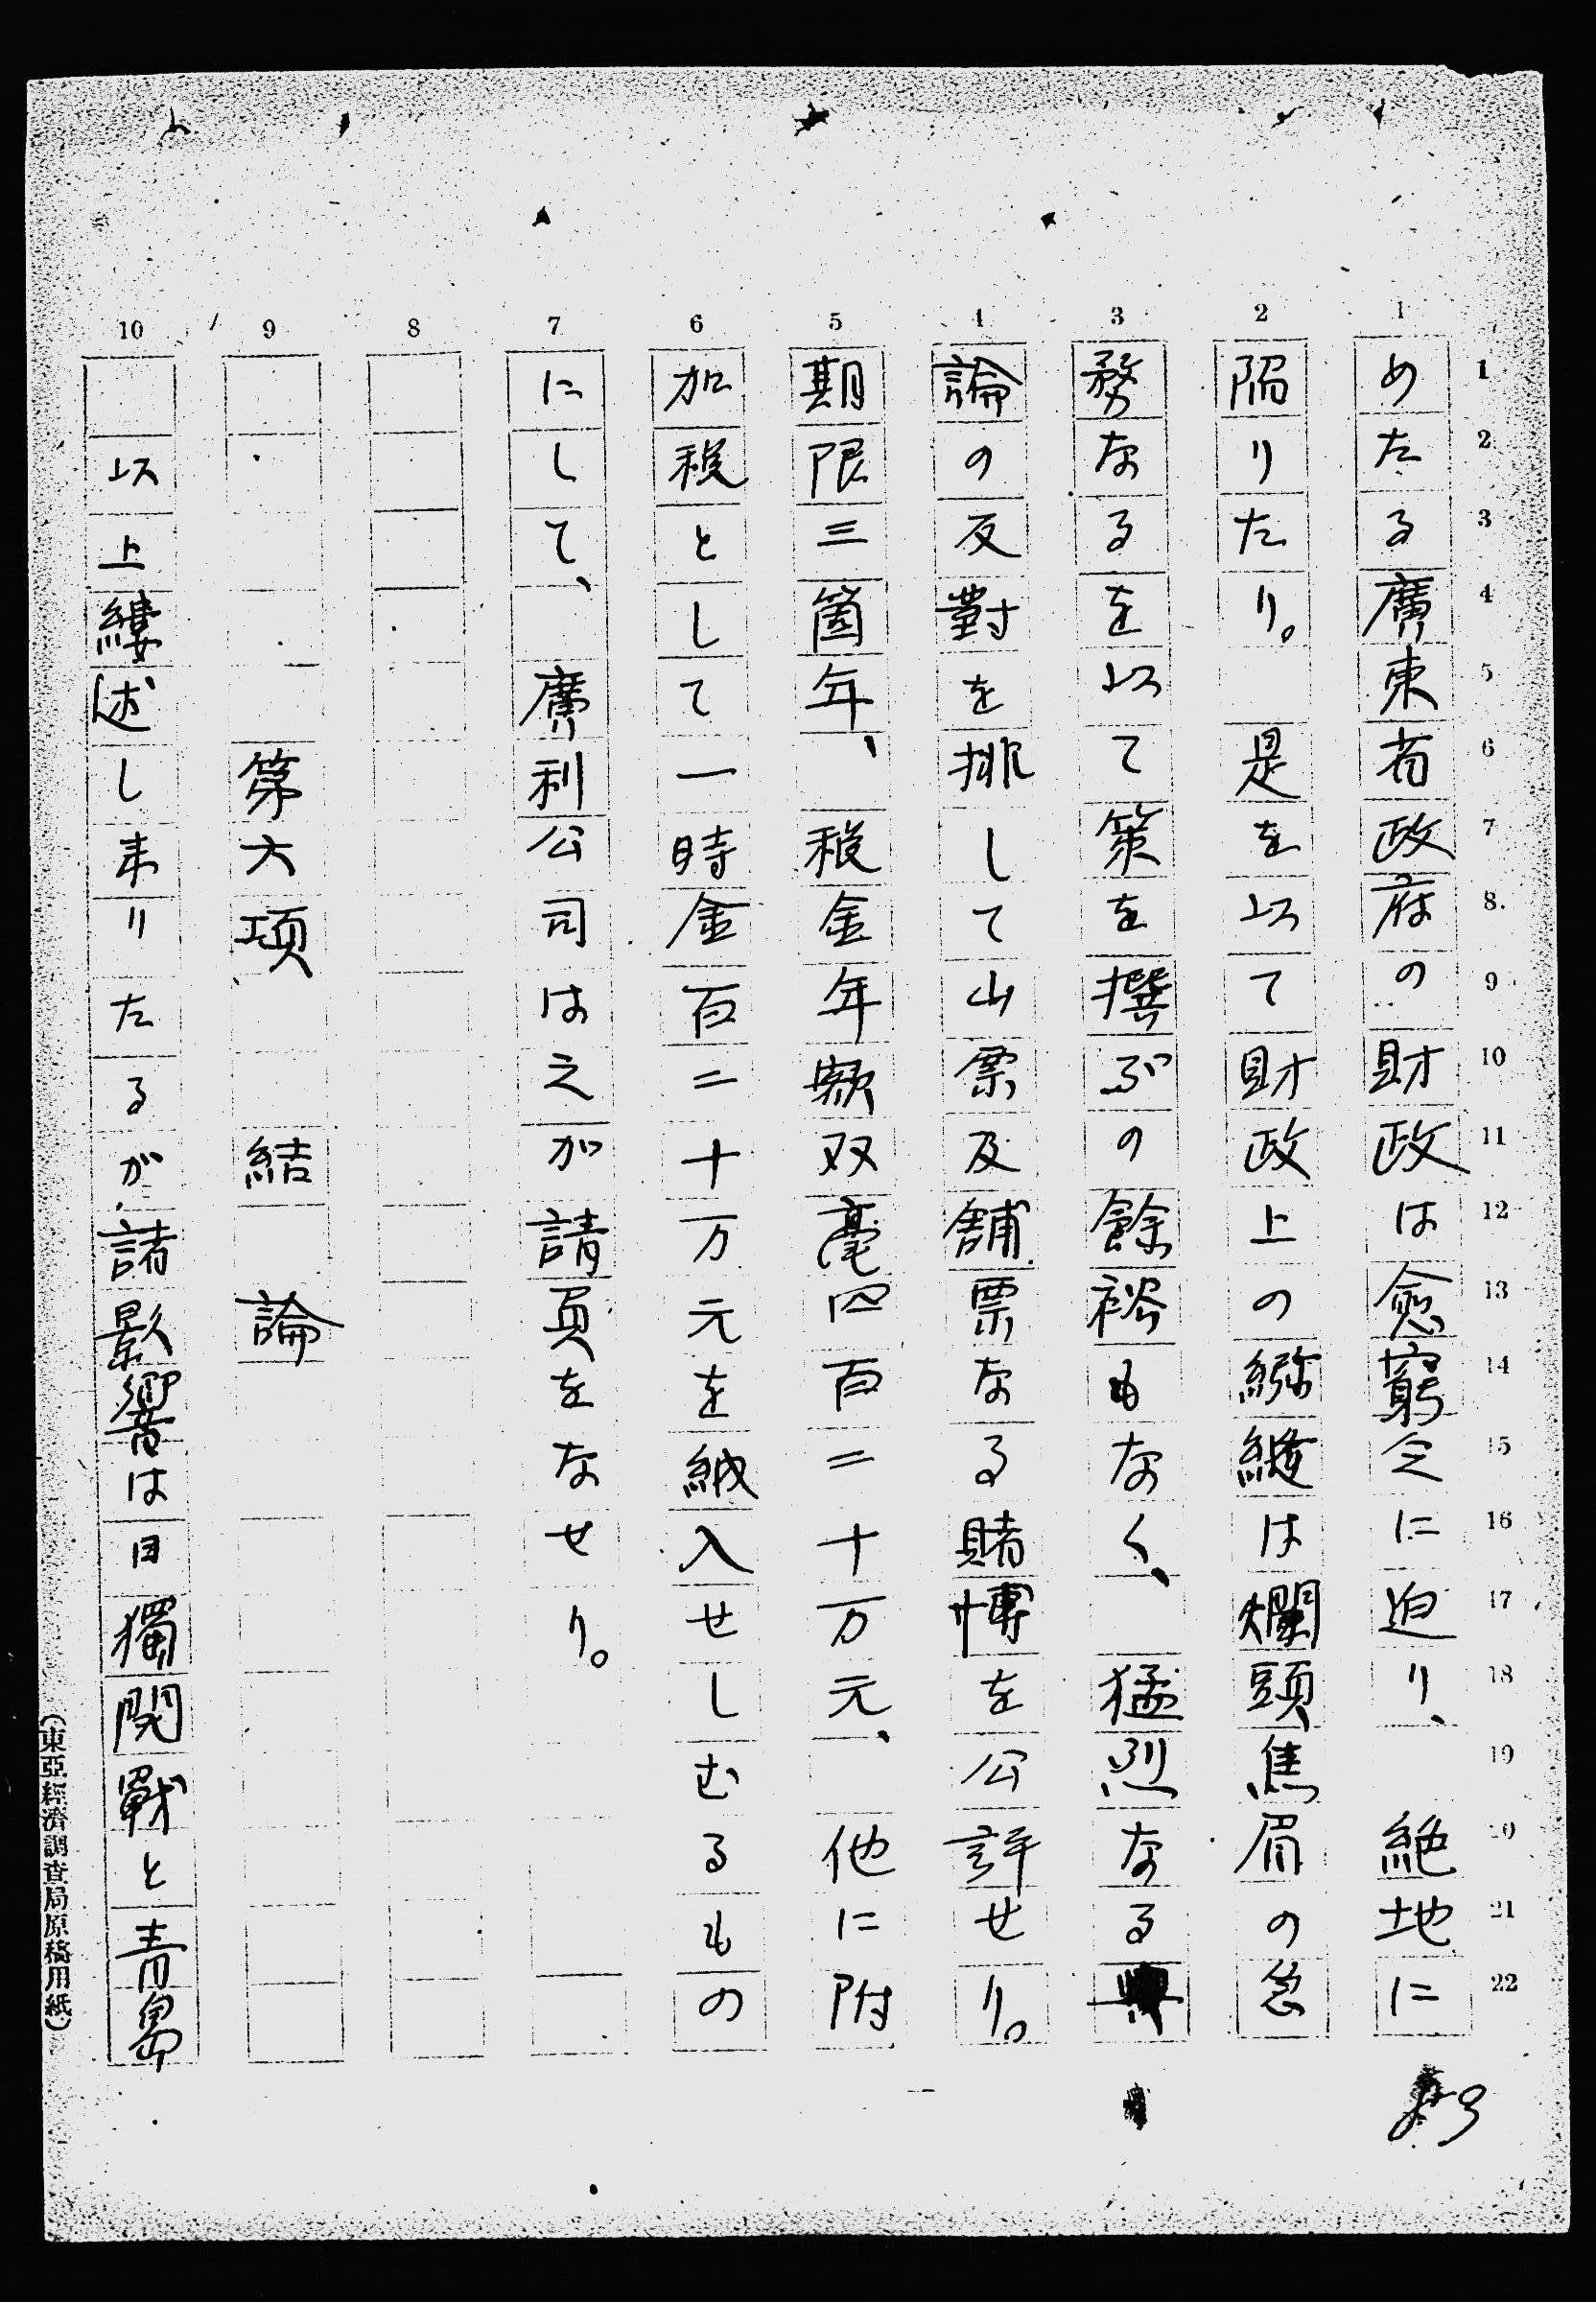 めたる廣東省政府の財政は愈窮乏に迫り、絶地に
陷りたり。是を以て財政上の繃縫は爛頭焦眉の急
務なるを以て策を撰ぶの餘裕もなく、猛烈なる
論の反對を排して山票及舖票なる賭博を公許せり。
期限三箇年、税金年額双毫四百二十万元、他に附
加税として一時金百二十万元を納入せしむるもの
にして、廣利公司は之が請負をなせり。
第六項 結論
以上縷述し来りたるが諸影響は日獨開戰と青島
(東亞經濟調査局原稿用紙)